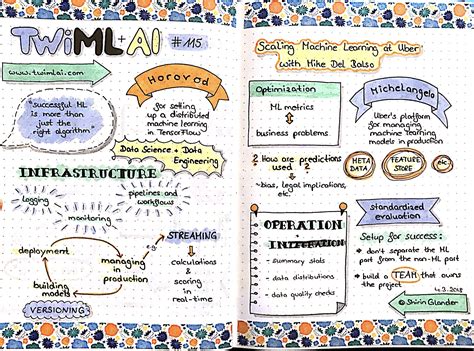 TWiML+AI #115
www.twimlai.com
"successful ML
is more than
just the
right algorithm"
Horovod
for setting
up a distributed
machine learning
in TensorFlow
Data Science + Data
Engineering
INFRASTRUCTURE
logging
monitoring
pipelines and
workflows
deployment
building
models
managing
in
production
VERSIONING
STREAMING
calculations
&
scoring
in
real-time
Scaling Machine Learning at Uber
with Mike Del Balso
Optimization
ML metrics
business problems
Michelangelo
Uber's platform
for managing
machine learning
models in production
? How are predictions
used ?
~bias, legal implications,
etc.
META
DATA
FEATURE
STORE
etc
OPERATION
+
INTEGRATION
- summary stats
- data distributions
- data quality checks
standardized
evaluation
Setup for success:
- don't separate the ML
part from the non-ML part
- build a TEAM that owns
the project
4.3.2018
©Shirin Glander